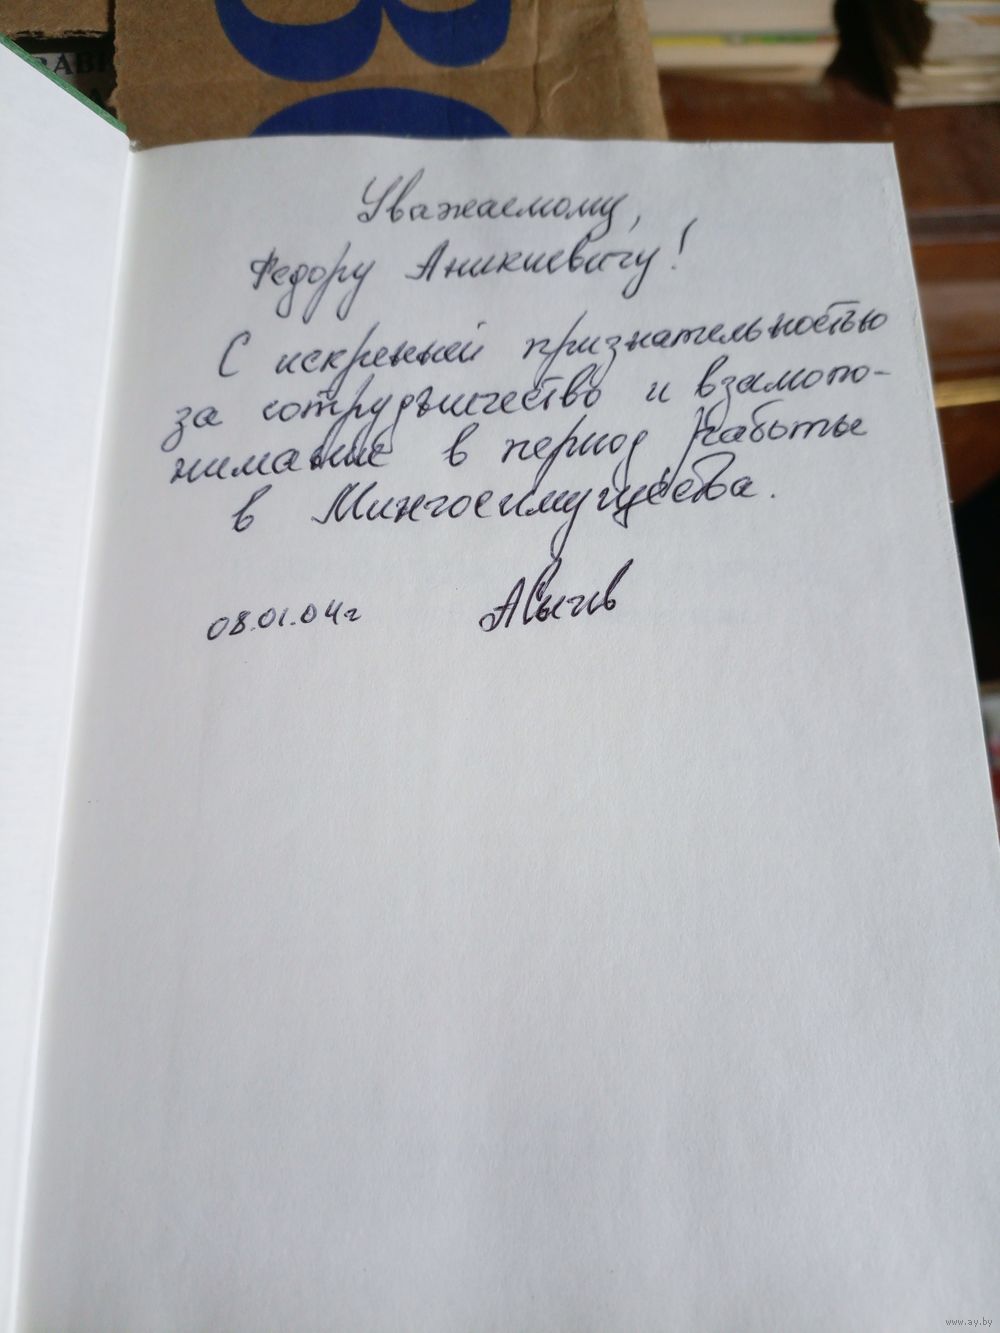 Уважаемому,
Федору Аникиевичу!
С искренней признательностью
за сотрудничество и взаимопо-
нимание в период работы
в Мингосимущества.
08.01.04г
www.ay.by